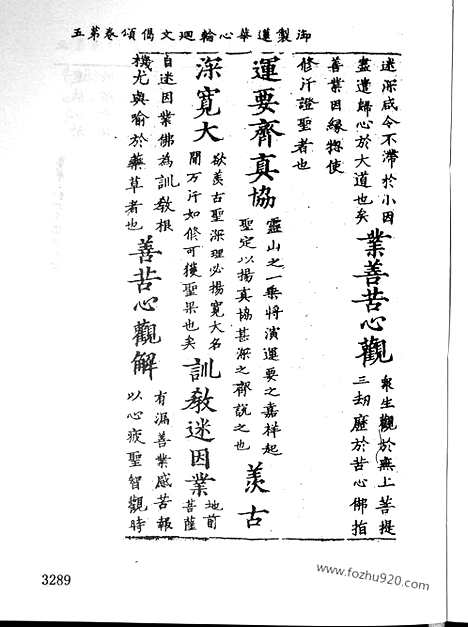 御製蓮華心輪迴文偈頌卷第五
迷深咸令不滯於小因
盡遣歸心於大道也矣
業善苦心觀
衆生觀於無上菩提
三劫歷於苦心佛指
善業因緣將使
修行證聖者也
運要齊真協
靈山之一乘將演運要之嘉祥起
聖定以揚真協甚深之齊說之也
羨古
深寬大
欲羨古聖深理必揚寬大名
聞万行如修可獲聖果也矣
訓教迷因業
地前
菩薩
自迷因業佛為訓教根
機尤與喻於藥草者也
善苦心觀解
有漏善業感苦報
以心疲聖智觀時
3289
www.fozhu920.com